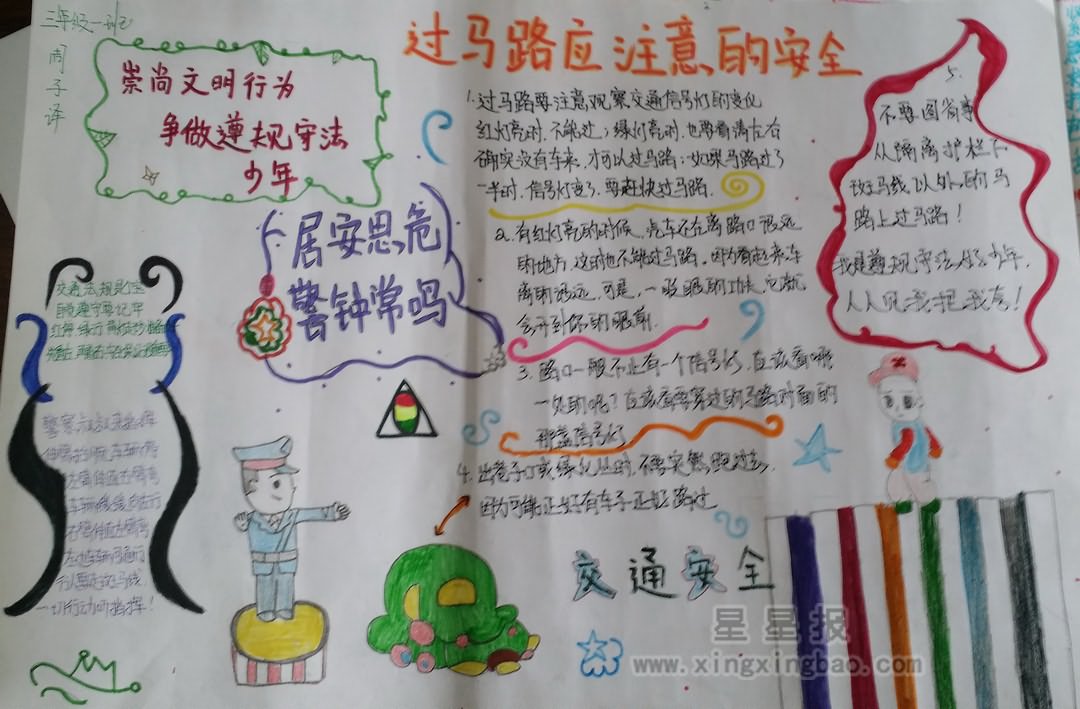 三年级一班
周子译
崇尚文明行为
争做遵规守法
少年
过马路应注意的安全
1.过马路要注意观察交通信号灯的变化
红灯亮时,不能过;绿灯亮时,也要看清左右
确实没有车来,才可以过马路;如果马路过了
一半时,信号灯变了,要赶快过马路.
2.有红灯亮的时候,汽车不在离路口很远
的地方,这时也不能过马路,因为看起来,车
离的很远,可是,一眨眼的功夫,它就
会开到你的眼前.
3.路口一般不止有一个信号灯,应该看哪
一处的呢?应该看要穿过的马路对面的
那盏信号灯
4.出巷子口或绿化丛时,不要突然跑过去,
因为可能正好有车子正好路过
5.
不要图省事
从隔离护栏下
斑马线以外的马
路上过马路!
我是遵规守法好少年,
人人见我把我夸!
居安思危
警钟常鸣
交通法规是个宝
自觉遵守要记牢
警察叔叔来指挥
左转车辆可通行
行人要走斑马线
一切行动听指挥!
交通安全
星星报
www.xingxingbao.com